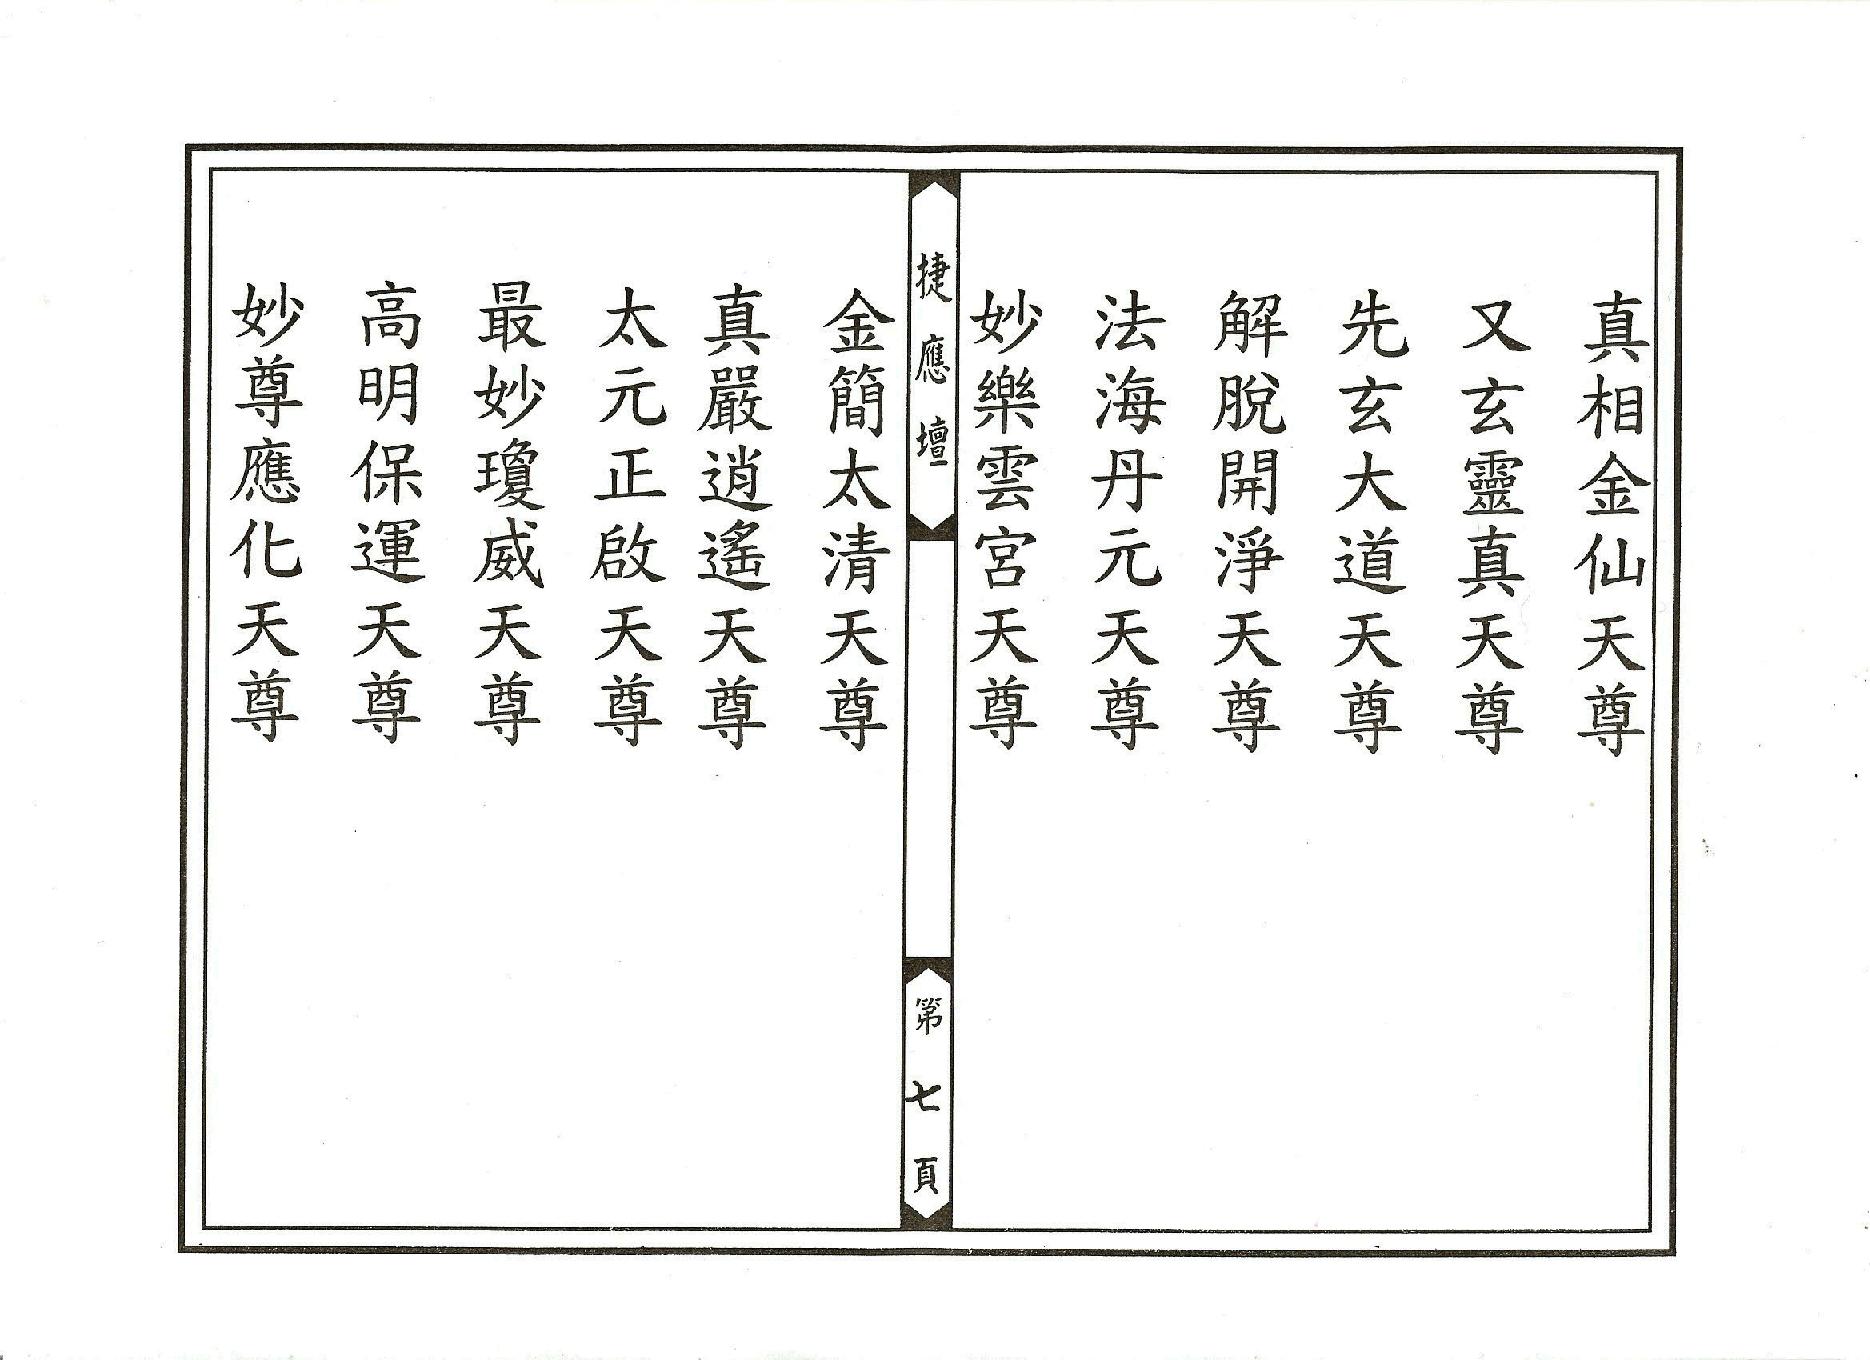 真相金仙天尊
又玄靈真天尊
先玄大道天尊
解脫開淨天尊
法海丹元天尊
妙樂雲宮天尊
捷應壇
第七頁
金簡太清天尊
真嚴逍遙天尊
太元正啟天尊
最妙瓊威天尊
高明保運天尊
妙尊應化天尊